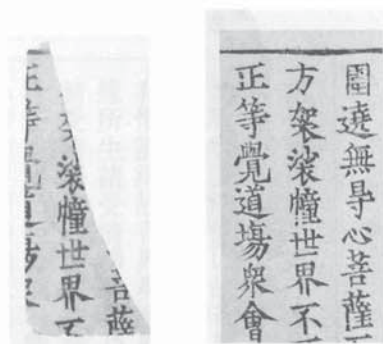 圍遶無㝵心菩薩
方架裟幢世界不
正等覺道場衆會
菩薩
裟幢世界
正等覺道場衆